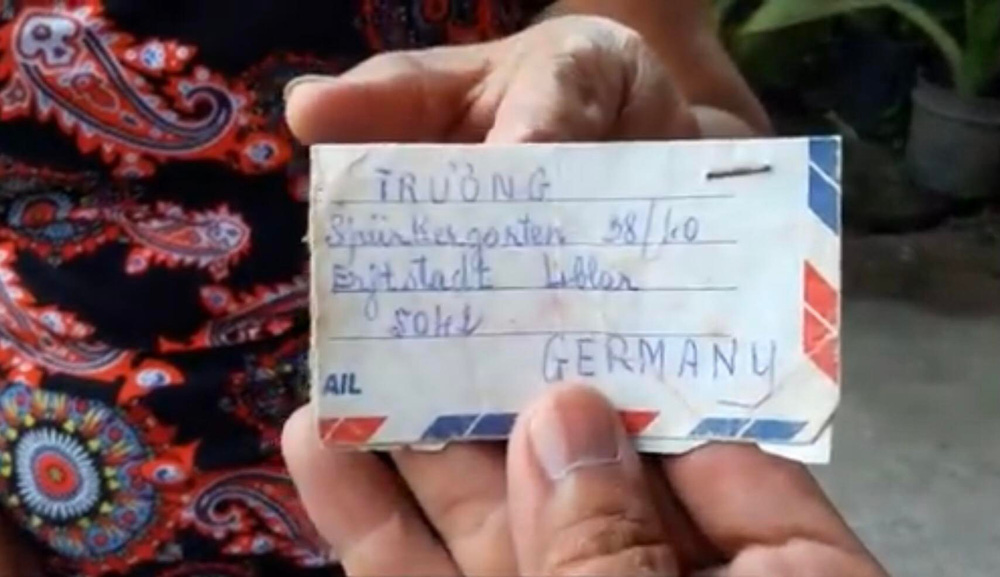 TRƯỜNG
Spürkergarten 38/40
Erftstadt Liblar
5042
GERMANY
AIL